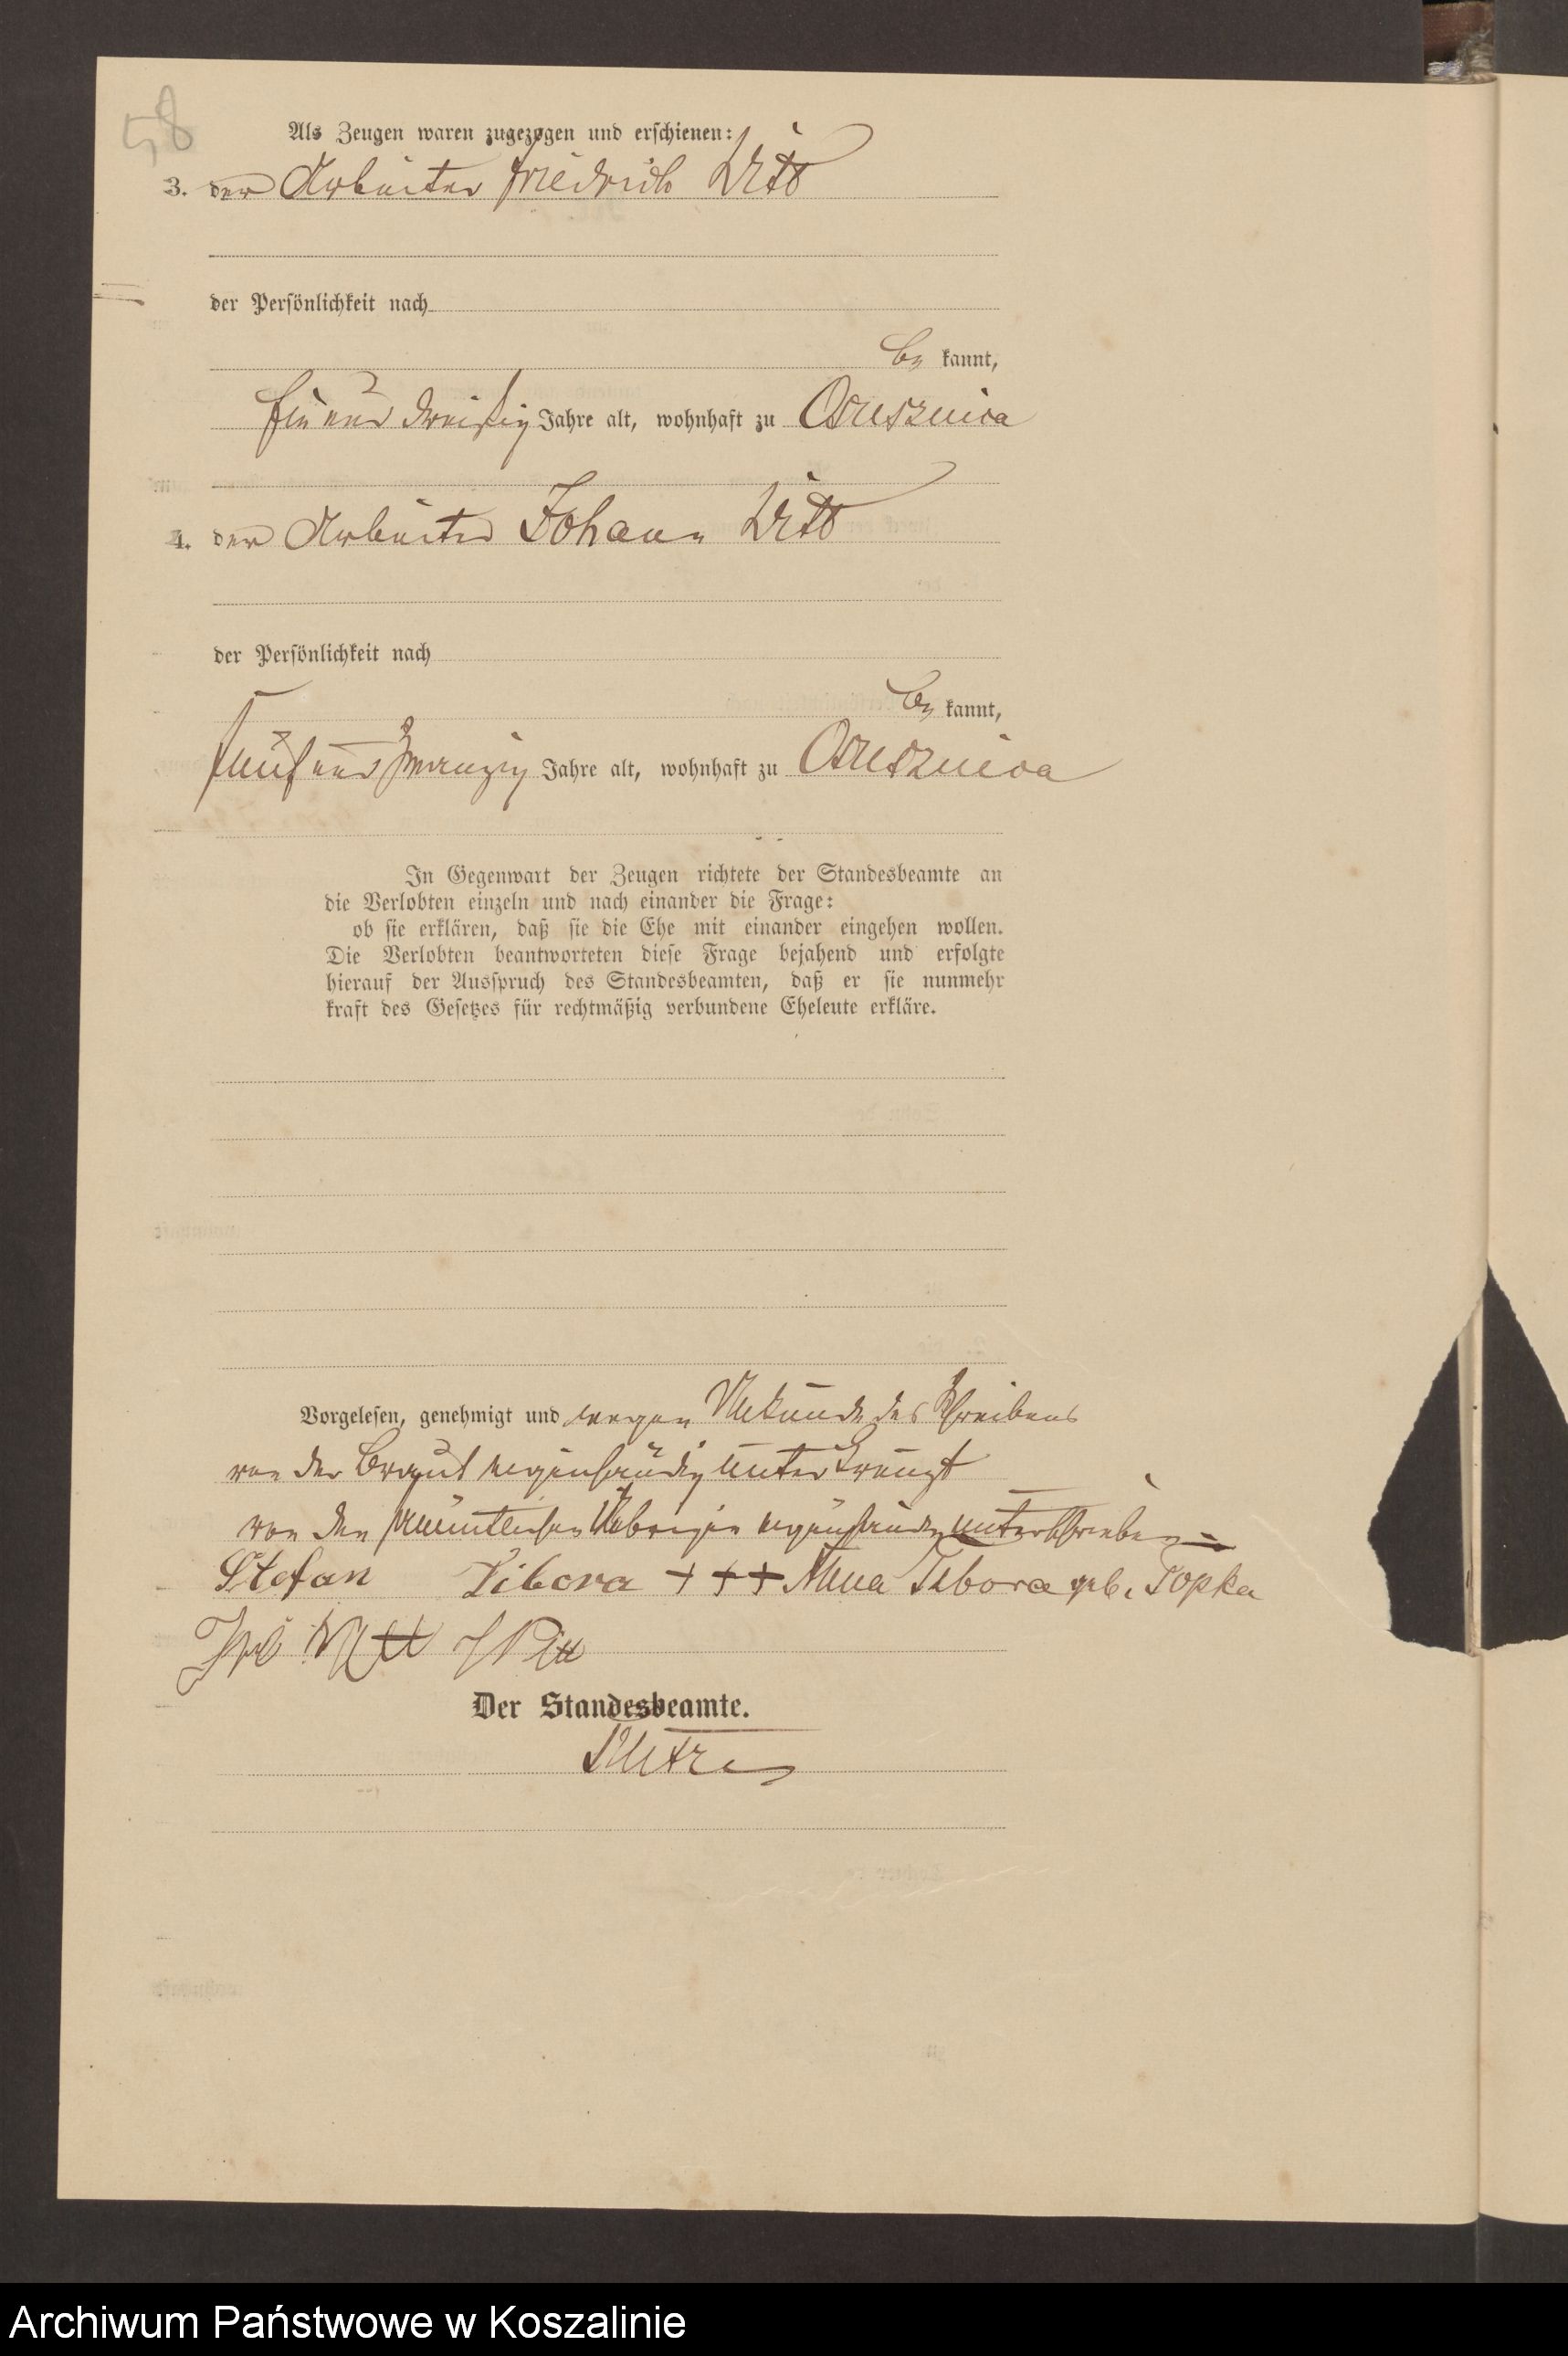 58
Als Zeugen waren zugezogen und erschienen:
3. der Arbeiter Friedrich Witt
der Persönlichkeit nach
be kannt,
ein und dreißig Jahre alt, wohnhaft zu Osusznica
4. der Arbeiter Johann Witt
der Persönlichkeit nach
be kannt,
fünf und zwanzig Jahre alt, wohnhaft zu Osusznica
In Gegenwart der Zeugen richtete der Standesbeamte an
die Verlobten einzeln und nach einander die Frage:
ob sie erklären, daß sie die Ehe mit einander eingehen wollen.
Die Verlobten beantworteten diese Frage bejahend und erfolgte
hierauf der Ausspruch des Standesbeamten, daß er sie nunmehr
kraft des Gesetzes für rechtmäßig verbundene Eheleute erkläre.
Vorgelesen, genehmigt und wegen Unkunde des Schreibens
von der Braut eigenhändig unterkreuzt
von den sämmtlichen Uebrigen eigenhändig unterschrieben
Stefan Zibora + + + Anna Zibora geb. Topka
Witt J Witt
Der Standesbeamte.
Archiwum Państwowe w Koszalinie